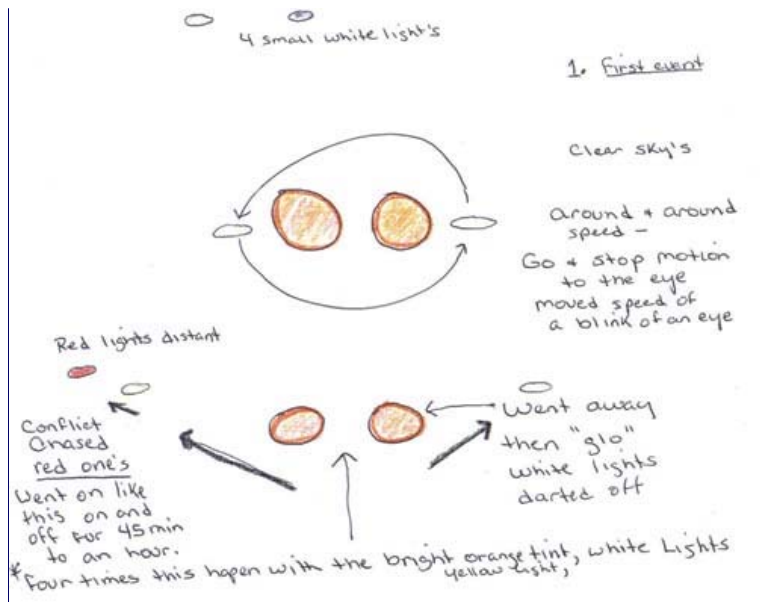 4 small white light's
1. First event
Clear sky's
around + around
speed –
Go + stop motion
to the eye
moved speed of
a blink of an eye
Red lights distant
Conflict
Chased
red one's
Went on like
this on and
off for 45 min
to an hour.
Went away
then "glo"
white lights
darted off
*four times this hapen with the bright orange tint, white Lights
yellow light,